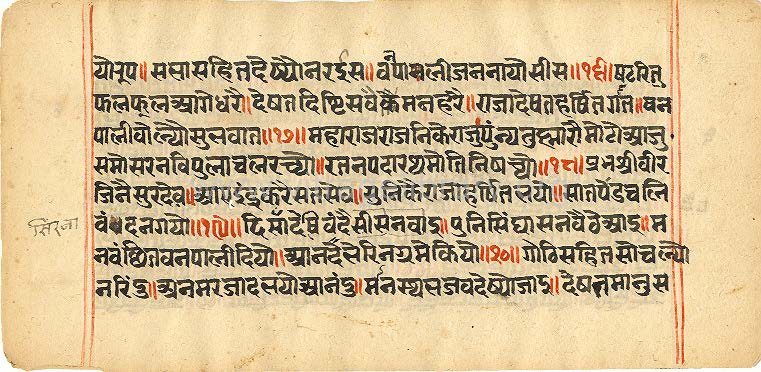 यौनृप॥ ससासहितदेष्यौनरईस॥ वनपालीजननायौसीस॥१६॥ षटरितु
फलफूलआगेधरै॥ देषतदिष्टिसवैकैमनहरै॥ राजादेषतहर्षितगात॥ वन
पालीवोल्यौसुलवात॥१७॥ महाराजराजनिकैराजु॥ पुंन्यतुह्मारौमोटौआजु
समोसरनविपुलाचलरच्यौ॥ रतनपदारथमोतिनिषच्यौ॥१८॥ प्रभश्रीवीर
जिनैसुरदेव॥ आएइंद्रकरैसतसेव॥ सुनिकैराजाहर्षितभयौ॥ सातपैंडचलि
वंदनगयौ॥१९॥ दिसाँदेषिवंदैसीसनवाइ॥ पुनिसिंघासनवैठेआइ॥ म
सिंरजा
नवंछितवनपालीदियौ॥ आनदभेरिनग्रमेकियौ॥२०॥ गोठिसहितसोचल्यौ
नरिंदु॥ अनमरजादभयौआनंदु॥ मनस्थभजवदेष्यौजाइ॥ देषतमानुस